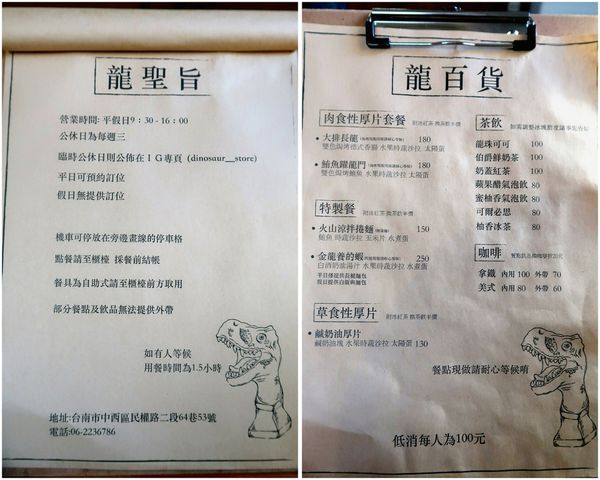 龍聖旨
營業時間: 平假日9：30 - 16：00
公休日為每週三
臨時公休日則公佈在 I G 專頁 (dinosaur__store)
平日可預約訂位
假日無提供訂位
機車可停放在旁邊畫線的停車格
點餐請至櫃檯 採餐前結帳
餐具為自助式請至櫃檯前方取用
部分餐點及飲品無法提供外帶
如有人等候
用餐時間為1.5小時
地址:台南市中西區民權路二段64巷53號
電話:06-2236786
龍百貨
肉食性厚片套餐 附冰紅茶 換茶飲半價
• 大排長龍 180
雙色焗烤德式香腸 水果時蔬沙拉 太陽蛋
• 鮪魚躍龍門 180
雙色焗烤鮪魚 水果時蔬沙拉 太陽蛋
特製餐 附冰紅茶 換茶飲半價
• 火山涼拌捲麵 150
鮪魚 時蔬沙拉 玉米片 水煮蛋
• 金龍養的蝦 250
白酒奶油湯汁 水果時蔬沙拉 水煮蛋
平日僅提供長棍麵包
假日提供白飯與麵包
草食性厚片 附冰紅茶 換茶飲半價
• 鹹奶油厚片
鹹奶油塊 水果時蔬沙拉 太陽蛋 130
茶飲
龍珠可可 100
伯爵鮮奶茶 100
奶蓋紅茶 100
蘋果醋氣泡飲 80
蜜柚香氣泡飲 80
可爾必思 80
柚香冰茶 80
咖啡
拿鐵 內用 100 外帶 70
美式 內用 80 外帶 60
餐點現做請耐心等候唷
低消每人為100元